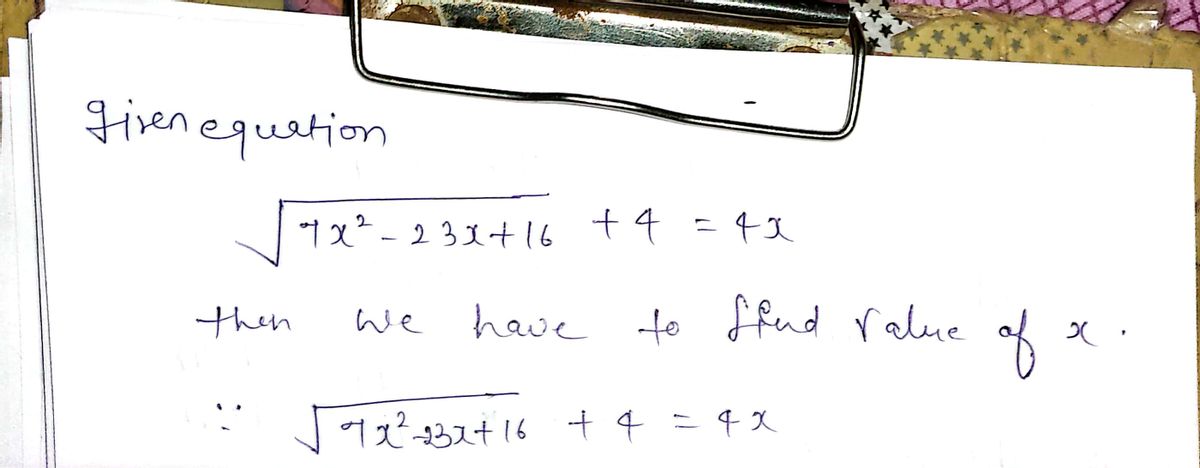 given equation
√7x² - 23x + 16 + 4 = 4x
then we have to find value of x .
∵ √7x² - 23x + 16 + 4 = 4x